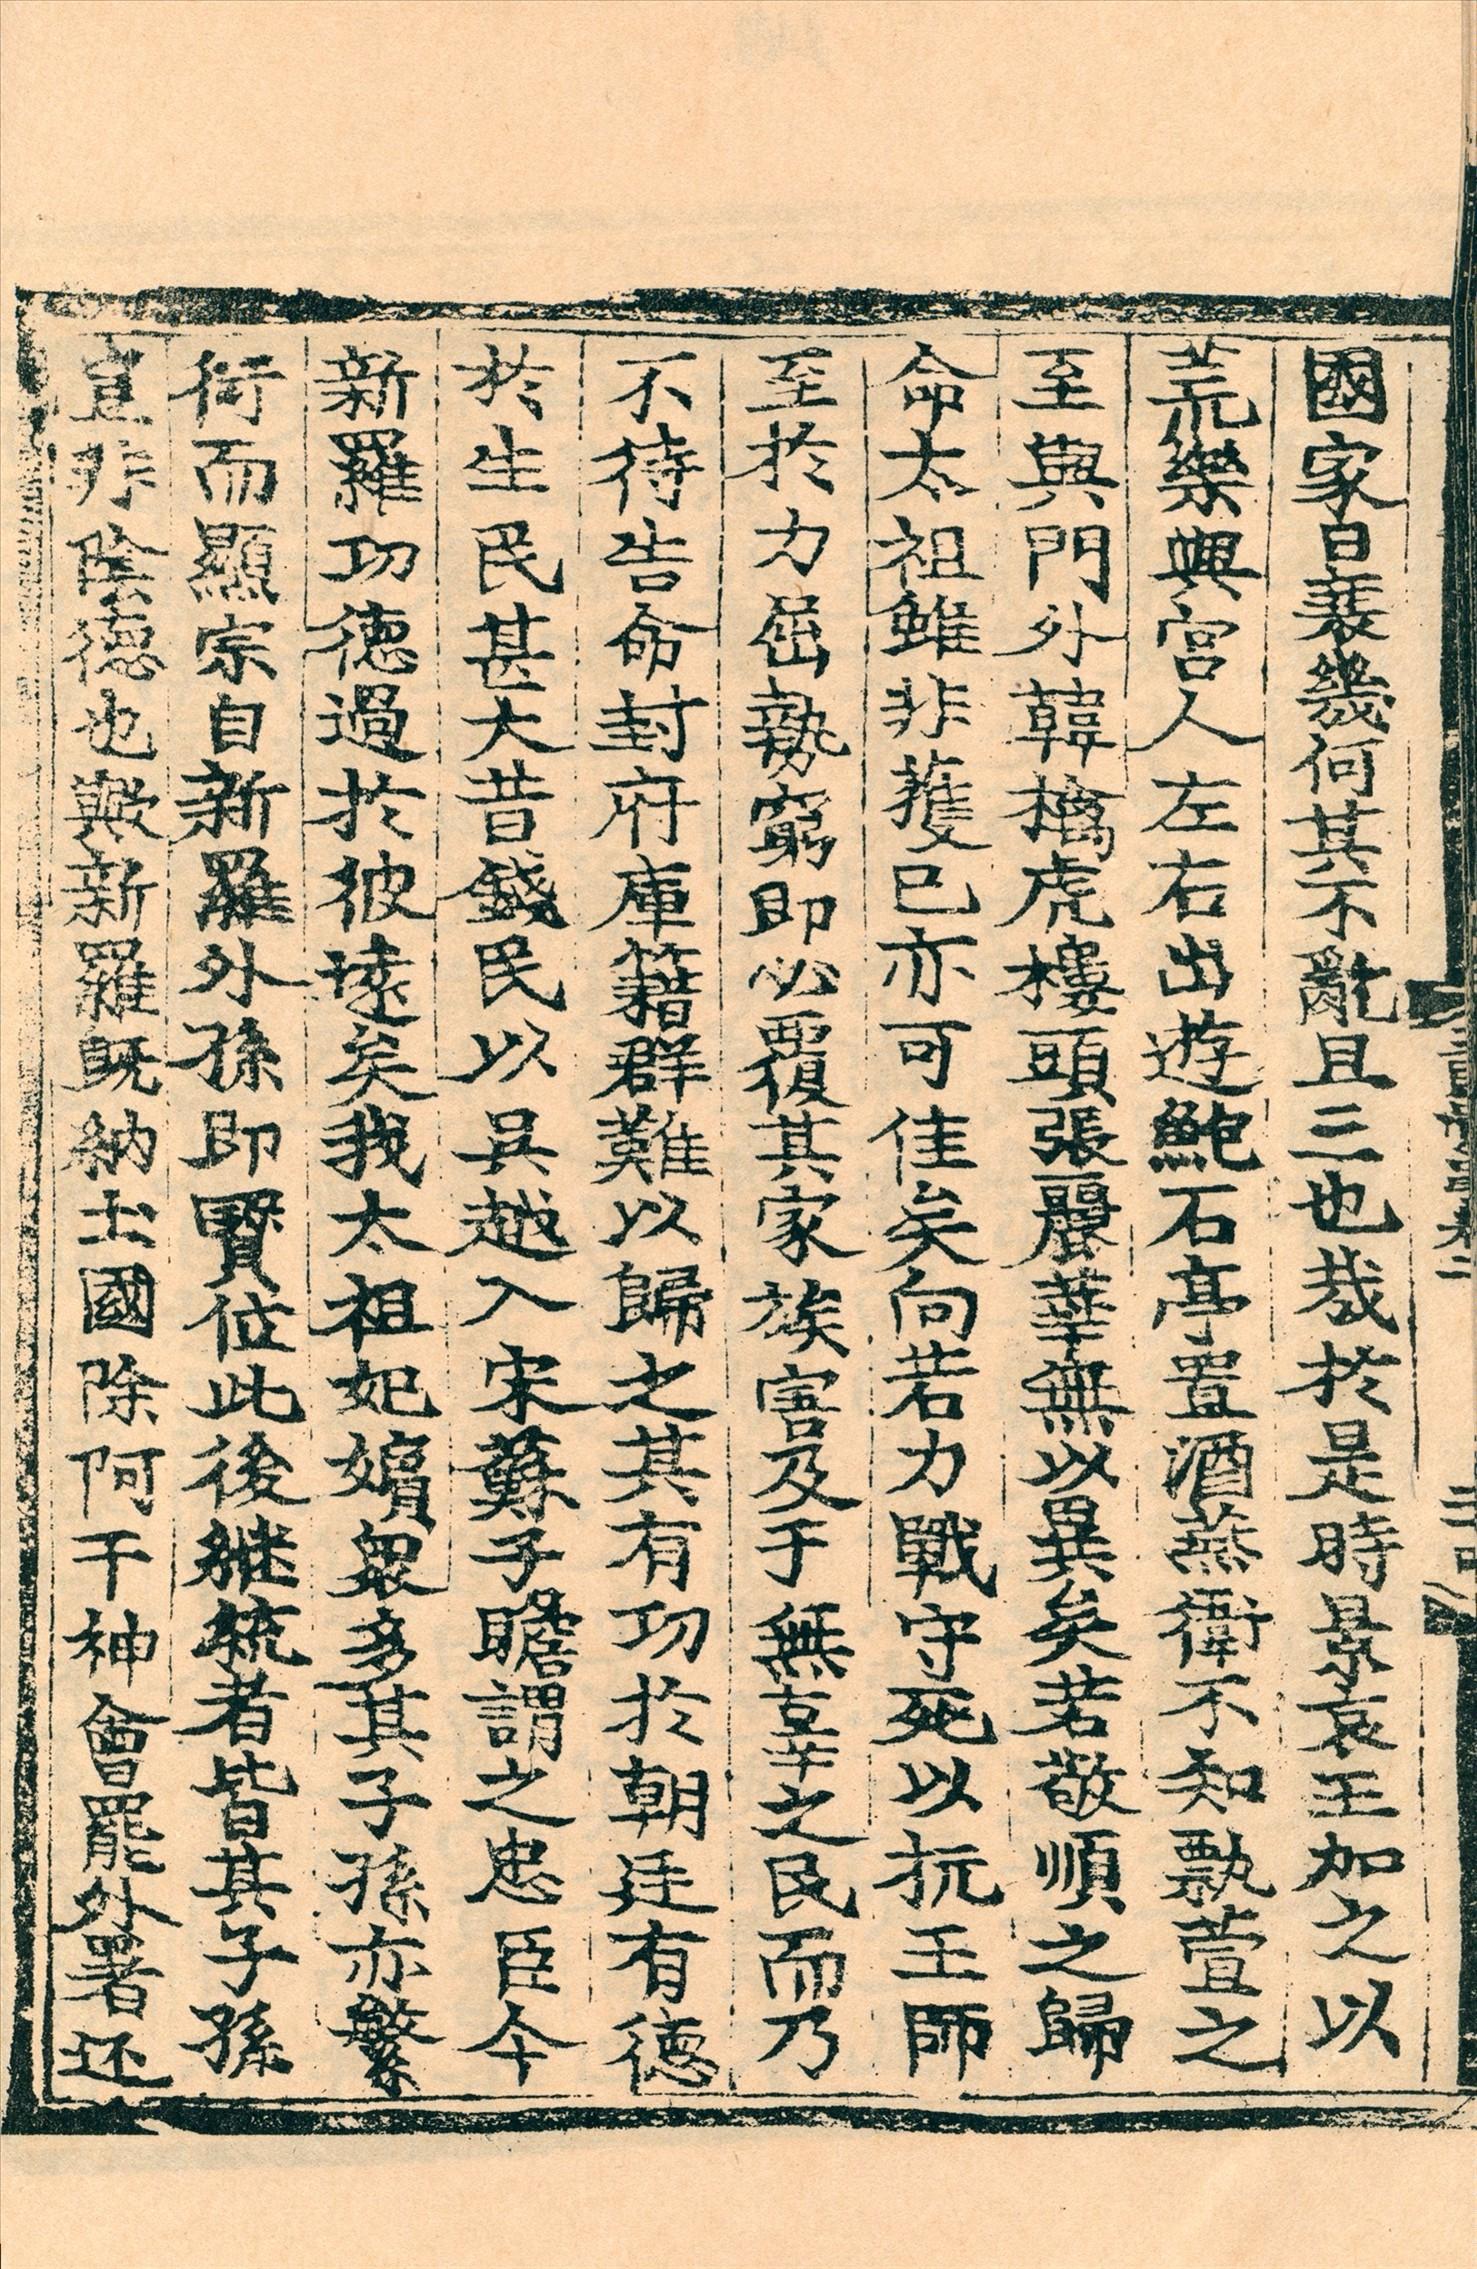 國家日衰幾何其不亂且三也㢤於是時景哀王加之以
荒樂與宮人左右出遊鮑石亭置酒燕衛不知甄萱之
至與門外韓擒虎樓頭張麗華無以異矣若敬順之歸
命太祖雖非獲已亦可佳矣向若力戰守死以抗王師
至於力屈勢窮即必覆其家族害及于無辜之民而乃
不待告命封府庫籍群難以歸之其有功於朝廷有德
於生民甚大昔錢民以吳越入宋蘇子瞻謂之忠臣今
新羅功德過於彼遠矣我太祖妃嬪衆多其子孫亦繁
衍而顯宗自新羅外孫即寶位此後継統者皆其子孫
豈非陰德也歟新羅旣納土國除阿干神會罷外署还